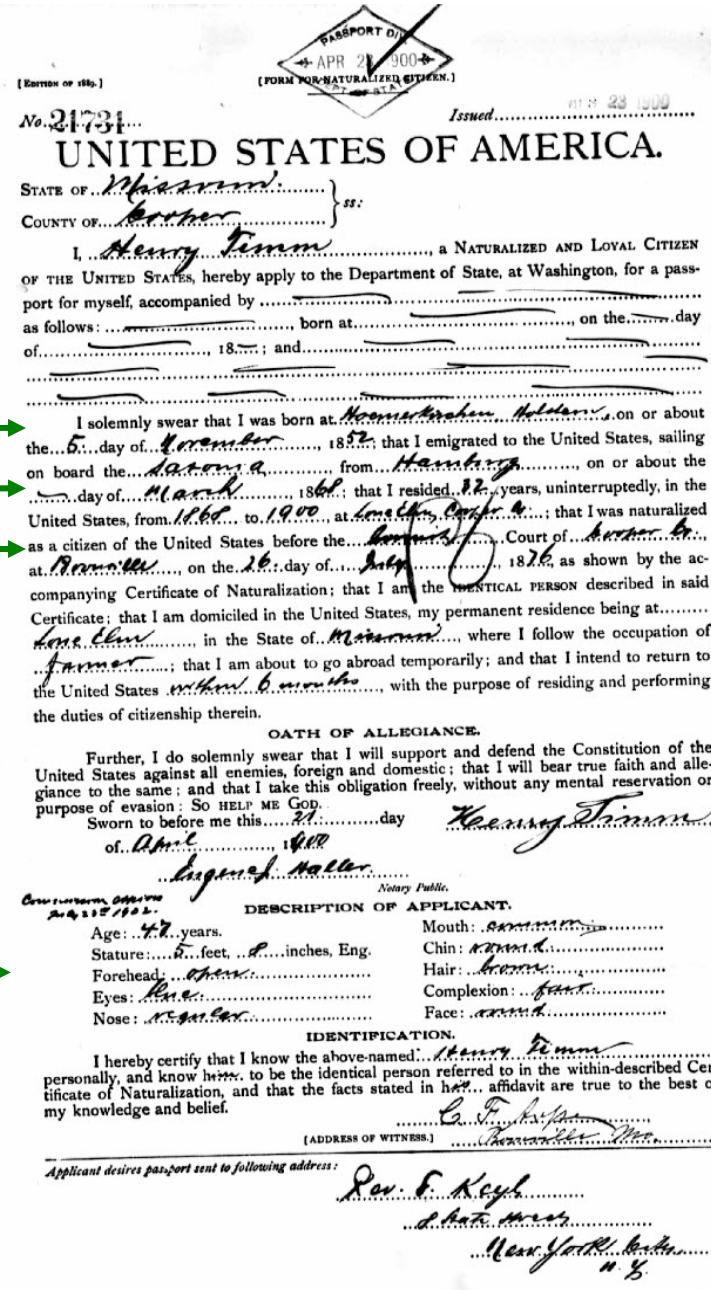 PASSPORT DIV
APR 23 1900
DEPT OF STATE
[EDITION OF 1889.]
[FORM FOR NATURALIZED CITIZEN.]
No. 21731 Issued 23 1900
UNITED STATES OF AMERICA.
STATE OF Missouri.
ss:
COUNTY OF Cooper
I, Henry Timm, a NATURALIZED AND LOYAL CITIZEN
OF THE UNITED STATES, hereby apply to the Department of State, at Washington, for a pass-
port for myself, accompanied by
as follows: , born at , on the day
of , 18 ; and
I solemnly swear that I was born at Hoemerkirchen Holstein, on or about
the 5. day of November, 1852; that I emigrated to the United States, sailing
on board the Saxonia from Hamburg, on or about the
day of March, 1868; that I resided 32 years, uninterruptedly, in the
United States, from 1868 to 1900, at Lone Elm, Cooper Co; that I was naturalized
as a citizen of the United States before the Court of Cooper Co.,
at Boonville, on the 26. day of July, 1876, as shown by the ac-
companying Certificate of Naturalization; that I am the IDENTICAL PERSON described in said
Certificate; that I am domiciled in the United States, my permanent residence being at
Lone Elm, in the State of Missouri, where I follow the occupation of
farmer; that I am about to go abroad temporarily; and that I intend to return to
the United States within 6 months, with the purpose of residing and performing
the duties of citizenship therein.
OATH OF ALLEGIANCE.
Further, I do solemnly swear that I will support and defend the Constitution of the
United States against all enemies, foreign and domestic; that I will bear true faith and alle-
giance to the same; and that I take this obligation freely, without any mental reservation or
purpose of evasion: SO HELP ME GOD.
Sworn to before me this 21 day Henry Timm
of April, 1900
Eugene J. Haller.
Notary Public.
Commission expires
1902.
DESCRIPTION OF APPLICANT.
Age: 47 years. Mouth: common
Stature: 5 feet, 8 inches, Eng. Chin: round
Forehead: open Hair: brown
Eyes: blue. Complexion: fair
Nose: regular Face: round
IDENTIFICATION.
I hereby certify that I know the above-named Henry Timm
personally, and know him to be the identical person referred to in the within-described Cer
tificate of Naturalization, and that the facts stated in his affidavit are true to the best o
my knowledge and belief.
C. F.
[ADDRESS OF WITNESS.] Boonville Mo.
Applicant desires passport sent to following address:
Rev. F. Keyl
8 State Street
New York City
N. Y.